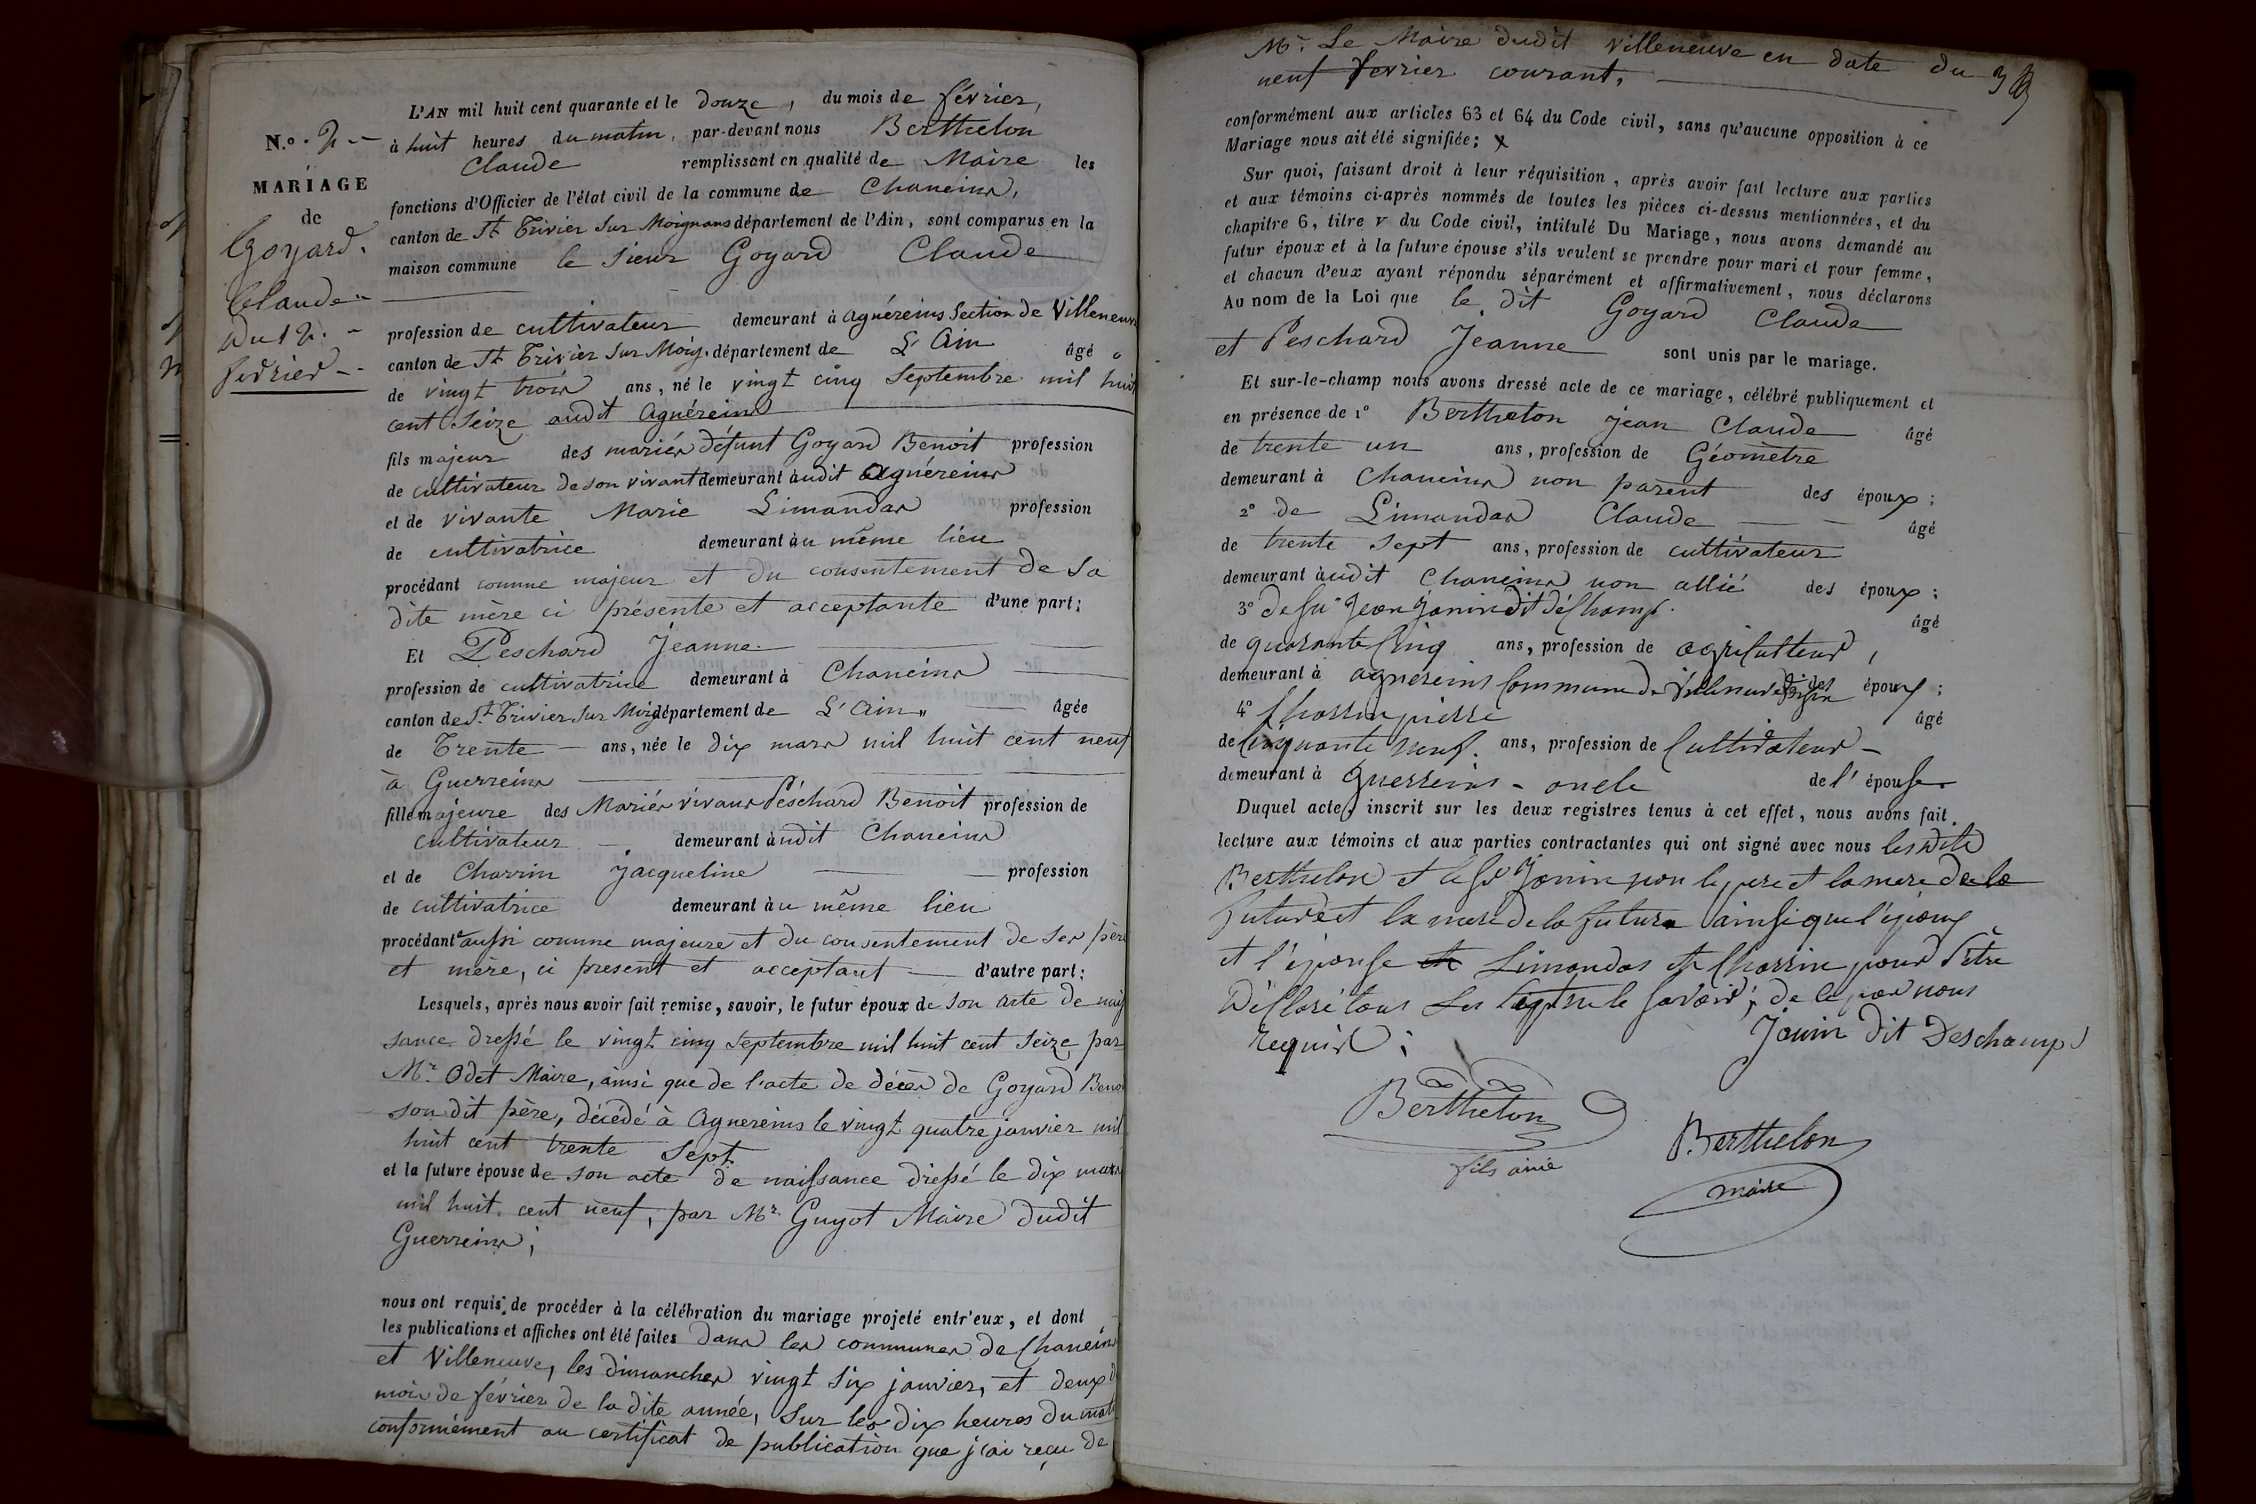 N.º 2
MARIAGE
de
Goyard
Claude
Du 12
février
L'AN mil huit cent quarante et le douze, du mois de février,
à huit heures du matin, par-devant nous Berthelon
Claude remplissant en qualité de Maire les
fonctions d'Officier de l'état civil de la commune de Chaneins,
canton de St Trivier sur Moignans département de l'Ain, sont comparus en la
maison commune le sieur Goyard Claude
profession de cultivateur demeurant à agnéreins Section de Villeneuve
canton de St Trivier sur Moig. département de L'Ain âgé
de vingt trois ans, né le vingt cinq Septembre mil huit
cent Seize audit agnéreins
fils majeur des mariés défunt Goyard Benoit profession
de cultivateur de son vivant demeurant àudit agnéreins
et de vivante Marie Limandas profession
de cultivatrice demeurant àu même lieu
procédant comme majeur et du consentement de sa
dite mère ci présente et acceptante d'une part;
Et Peschard Jeanne
profession de cultivatrice demeurant à Chaneins
canton de St Trivier sur Moig département de L'Ain âgée
de Trente ans, née le dix mars mil huit cent neuf
à Guerreins
fille majeure des Mariés vivans Péschard Benoit profession de
cultivateur demeurant àudit Chaneins
et de Charrin Jacqueline profession
de cultivatrice demeurant àu même lieu
procédant aussi comme majeure et du consentement de ses père
et mère, ci present et acceptant d'autre part;
Lesquels, après nous avoir fait remise, savoir, le futur époux de son acte de nais
sance dressé le vingt cinq Septembre mil huit cent Seize par
Mr Odet Maire, ainsi que de l'acte de décès de Goyard Benoi
son dit père, décédé à agnereins le vingt quatre janvier mil
huit cent trente sept
et la future épouse de son acte de naissance dressé le dix mars
mil huit cent neuf, par Mr Guyot Maire dudit
Guerreins;
nous ont requis de procéder à la célébration du mariage projeté entr'eux, et dont
les publications et affiches ont été faites dans les communes de Chaneins
et Villeneuve, les dimanches vingt six janvier, et deux d
mois de février de la dite année, sur les dix heures du mati
conformément au certificat de publication que j'ai reçu de
Mr Le Maire dudit Villeneuve en date du
neuf fevrier courant,
conformément aux articles 63 et 64 du Code civil, sans qu'aucune opposition à ce
Mariage nous ait été signifiée; x
Sur quoi, faisant droit à leur réquisition, après avoir fait lecture aux parties
et aux témoins ci-après nommés de toutes les pièces ci-dessus mentionnées, et du
chapitre 6, titre v du Code civil, intitulé Du Mariage, nous avons demandé au
futur époux et à la future épouse s'ils veulent se prendre pour mari et pour femme,
et chacun d'eux ayant répondu séparément et affirmativement, nous déclarons
Au nom de la Loi que le dit Goyard Claude
et Peschard Jeanne sont unis par le mariage.
Et sur-le-champ nous avons dressé acte de ce mariage, célébré publiquement et
en présence de 1º Berthelon Jean Claude âgé
de trente un ans, profession de Géomètre
demeurant à Chaneins non parent des époux;
2º de Limandas Claude âgé
de trente sept ans, profession de cultivateur
demeurant àudit Chaneins non allié des époux;
3º de Jean Janin dit déschamps âgé
de quarante Cinq ans, profession de agriculteur,
demeurant à agnereins Commune de Villeneuve des époux;
4º Charrin pierre âgé
de Cinquante neuf ans, profession de Cultivateur
demeurant à guerreins - oncle de l'épouse
Duquel acte, inscrit sur les deux registres tenus à cet effet, nous avons fait
lecture aux témoins et aux parties contractantes qui ont signé avec nous les dits
Berthelon et le Sr Janin non le pere et la mere de la
futur et la mere de la future ainsi que l'époux
et l'épouse Limandas et Charrin pour
déclaré tous savoir; de ce par nous
requis;
Janin dit Deschamps
Berthelon
fils ainé
Berthelon
maire